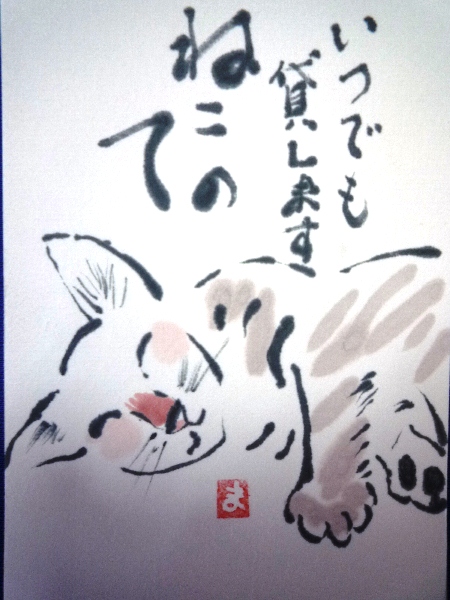 いつでも
貸します
ねこの
て
ま